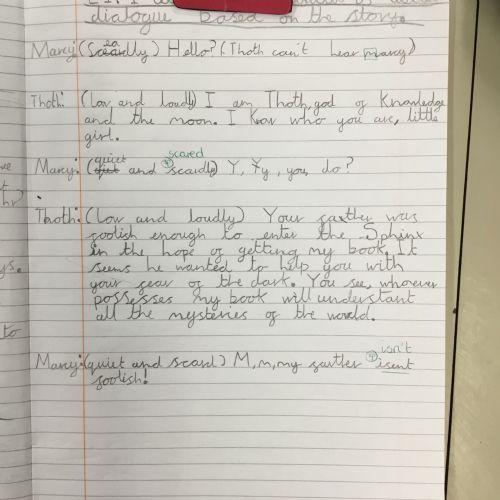 dialogue based on the story.
Marcy: (Scearlly) Hello? (Thoth can't hear marcy)
Thoth: (low and loudly) I am Thoth, god of Knowledge
and the moon. I know who you are, little
girl.
quiet scared
Marcy: (quiet and scardly) Y, Yy, you, do?
Thoth: (Low and loudly) Your farther was
foolish enough to enter the Sphinx
in the hope of getting my book. It
seems he wanted to help you with
your fear of the dark. You see, whoever
possesses my book will understant
all the mysteries of the world.
isn't
Marcy: (quiet and scard) M, m, my farther isent
foolish!
ys.
to